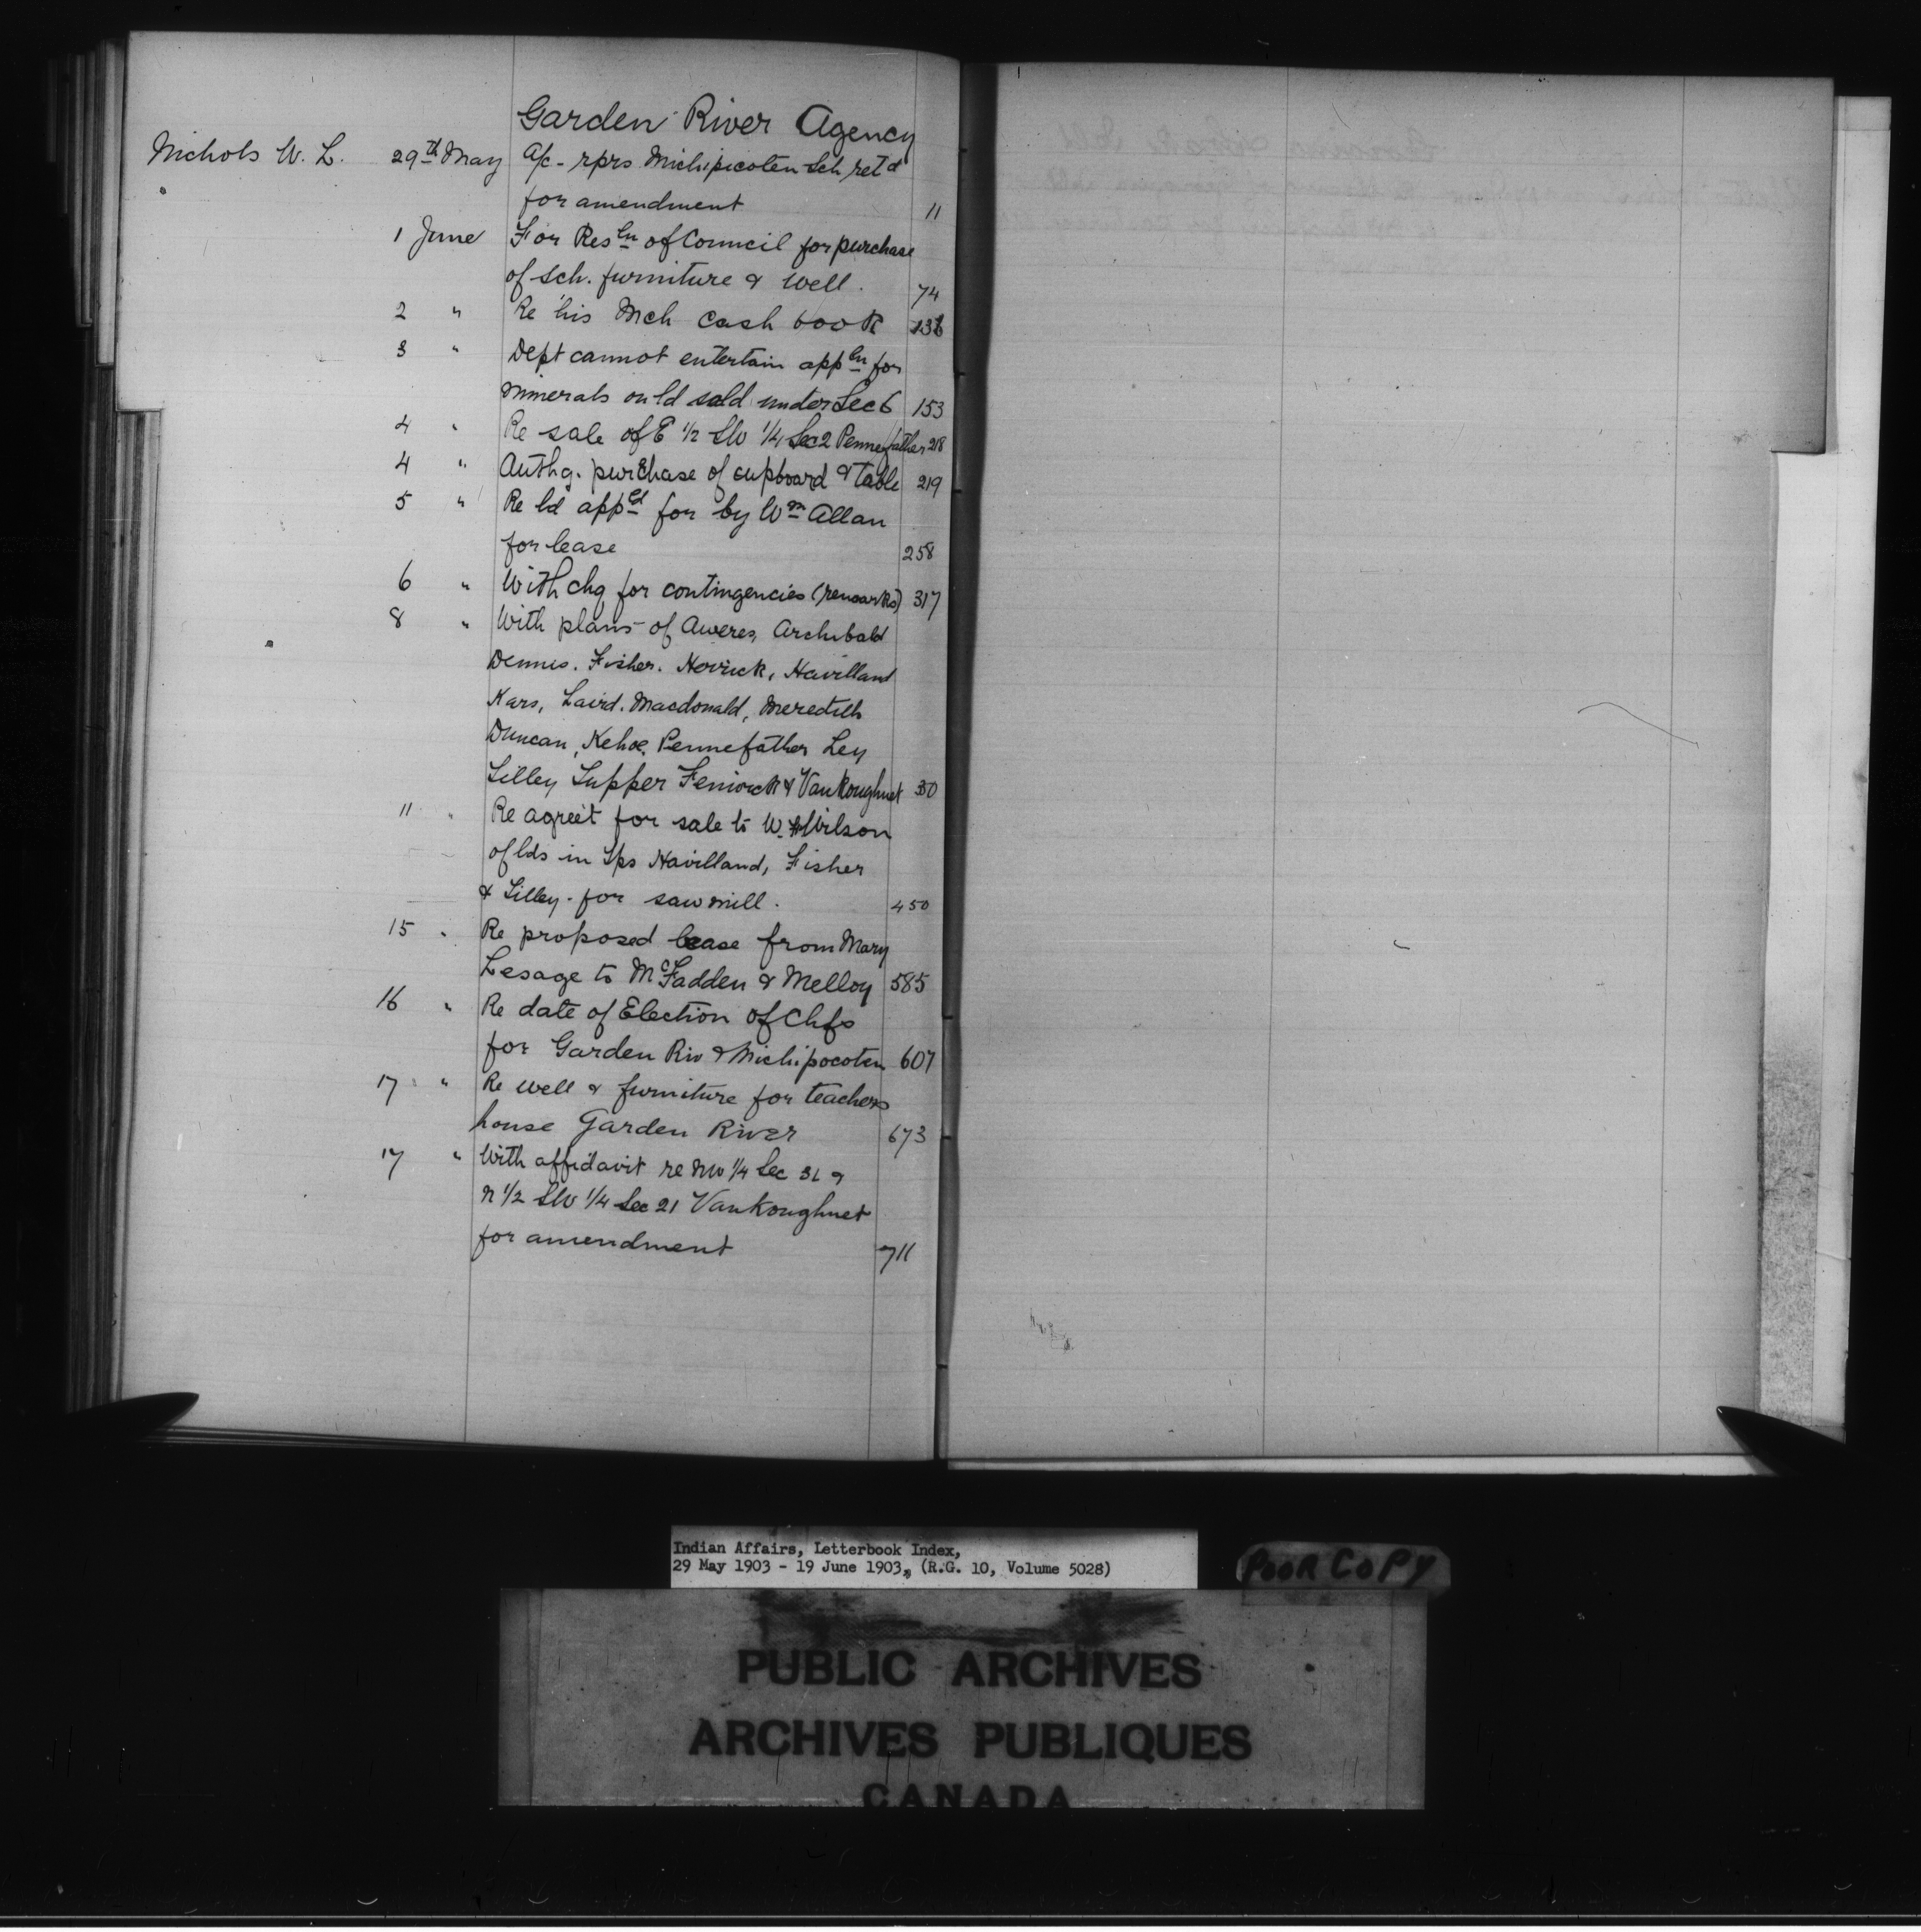 Garden River Agency
Nichols W. L. 29th May A/c - rprs Michipicoten Sch ret'd
for amendment 11
1 June For Resln of Council for purchase
of sch. furniture & well. 74
2 " Re his Mch cash book 136
3 " Dept cannot entertain appln for
minerals on ld sold under Sec 6 153
4 " Re sale of E 1/2 SW 1/4 Sec 2 Pennefather 218
4 " Authg. purchase of cupboard & table 219
5 " Re ld appld for by Wm Allan
for lease 258
6 " With chq for contingencies (remarks) 317
8 " With plans of Aweres, Archibald
Dennis. Fisher. Herrick, Havilland
Kars, Laird. Macdonald, Meredith
Duncan, Kehoe, Pennefather Ley
Tilley Tupper Fenwick & VanKoughnet
11 " Re agree't for sale to W. Wilson
of lds in Tps Havilland, Fisher
& Tilley - for saw mill. 450
15 " Re proposed lease from Mary
Lesage to McFadden & Melloy 585
16 " Re date of Election of Chfs
for Garden Riv & Michipocoten 607
17 " Re well & furniture for teachers
house Garden River 673
17 " With affidavit re NW 1/4 Sec &
N 1/2 SW 1/4 Sec 21 VanKoughnet
for amendment 711
Indian Affairs, Letterbook Index,
29 May 1903 - 19 June 1903, (R.G. 10, Volume 5028)
POOR COPY
PUBLIC ARCHIVES
ARCHIVES PUBLIQUES
CANADA